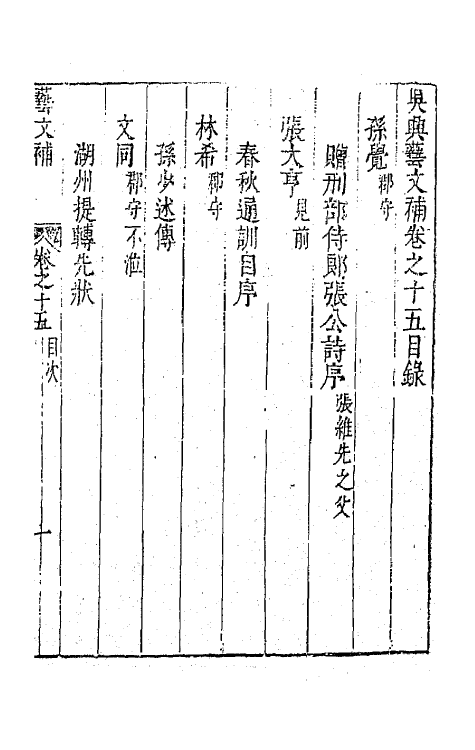 吳興藝文補卷之十五目錄
孫覺郡守
贈刑部侍郎張公詩序張維先之父
張大亨見前
春秋通訓目序
林希郡守
孫少述傳
文同郡守不涖
湖州提轉先狀
藝文補 卷之十五目次 一